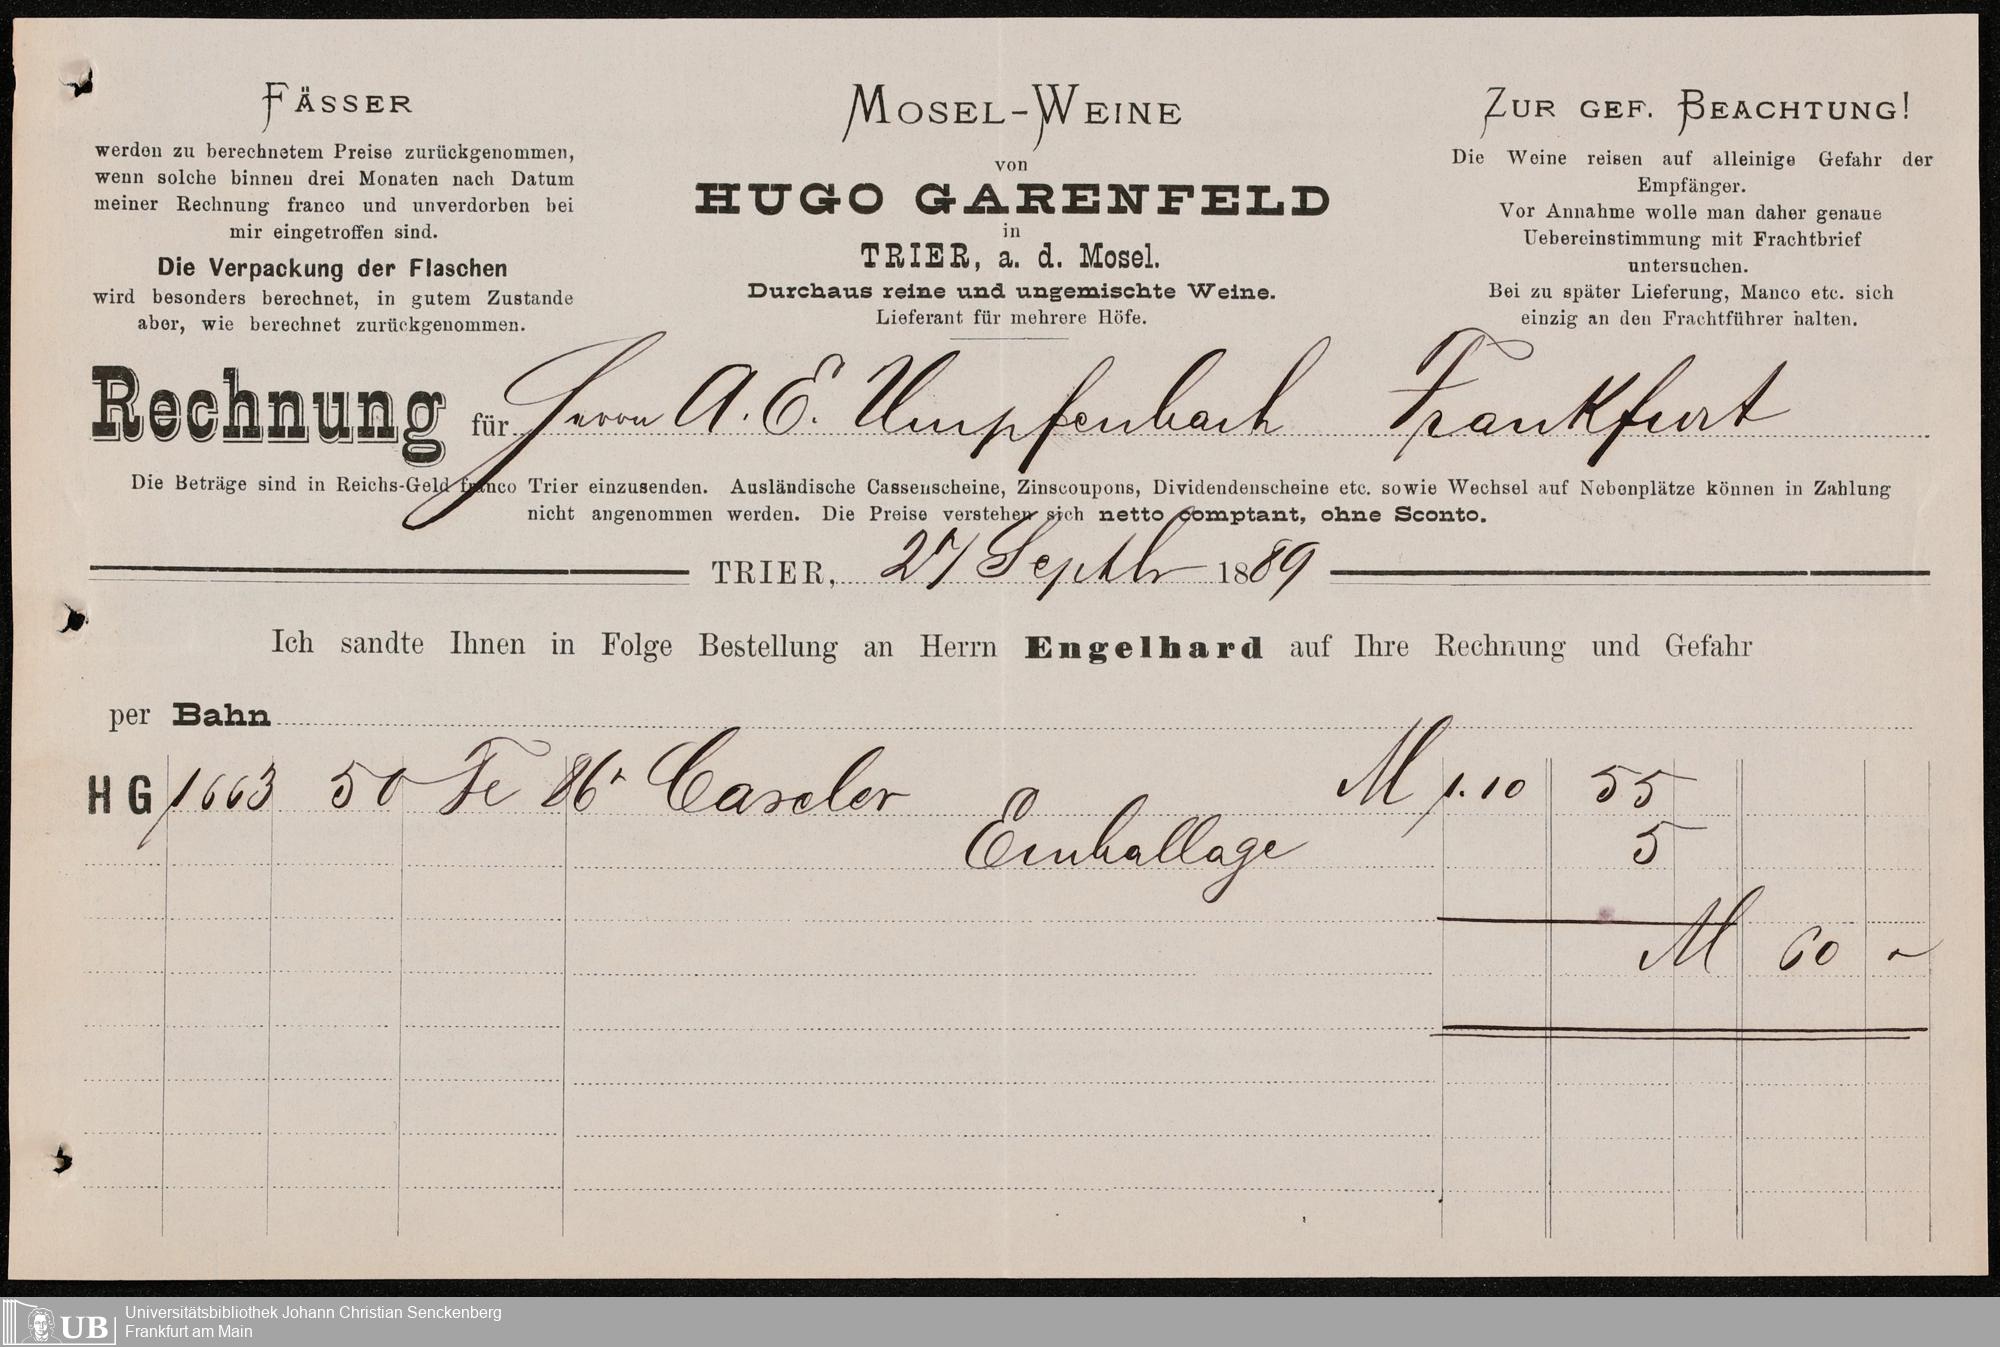 FÄSSER
werden zu berechnetem Preise zurückgenommen,
wenn solche binnen drei Monaten nach Datum
meiner Rechnung franco und unverdorben bei
mir eingetroffen sind.
Die Verpackung der Flaschen
wird besonders berechnet, in gutem Zustande
aber, wie berechnet zurückgenommen.
MOSEL-WEINE
von
HUGO GARENFELD
in
TRIER, a. d. Mosel.
Durchaus reine und ungemischte Weine.
Lieferant für mehrere Höfe.
ZUR GEF. BEACHTUNG!
Die Weine reisen auf alleinige Gefahr der
Empfänger.
Vor Annahme wolle man daher genaue
Uebereinstimmung mit Frachtbrief
untersuchen.
Bei zu später Lieferung, Manco etc. sich
einzig an den Frachtführer halten.
Rechnung für Herrn A. E. Umpfenbach Frankfurt
Die Beträge sind in Reichs-Geld franco Trier einzusenden. Ausländische Cassenscheine, Zinscoupons, Dividendenscheine etc. sowie Wechsel auf Nebenplätze können in Zahlung
nicht angenommen werden. Die Preise verstehen sich netto comptant, ohne Sconto.
TRIER, 27 Septbr 1889
Ich sandte Ihnen in Folge Bestellung an Herrn Engelhard auf Ihre Rechnung und Gefahr
per Bahn
HG 1663 50 Fl 86r Caseler M 1.10 55
Emballage 5
M 60 -
UB
Universitätsbibliothek Johann Christian Senckenberg
Frankfurt am Main